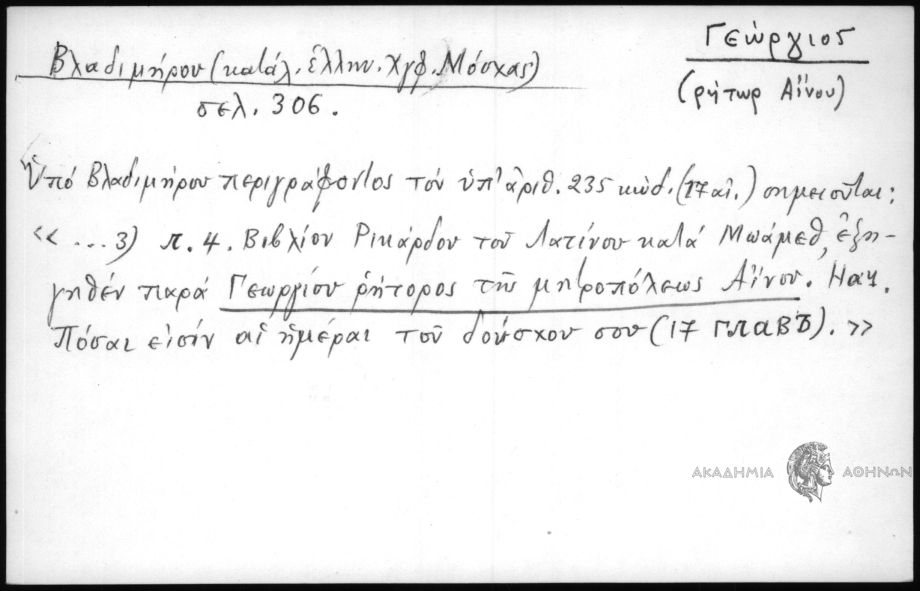 Βλαδιμήρου (κατάλ. ἑλλην. Χγφ. Μόσχας)
σελ. 306.
Γεώργιος
(ρήτωρ Αἴνου)
Ὑπό Βλαδιμήρου περιγράφοντος τόν ὑπ' ἀριθ. 235 κώδ. (17 αἰ.) σημειοῦται:
<< ... 3) π. 4. Βιβλίον Ρικάρδου τοῦ Λατίνου κατά Μωάμεθ, ἐξη-
γηθέν παρά Γεωργίου ῥήτορος τῆς μητροπόλεως Αἴνου. Нач.
Πόσαι εἰσίν αἱ ἡμέραι τοῦ δούσχου σου (17 главъ). >>
ΑΚΑΔΗΜΙΑ ΑΘΗΝΩΝ